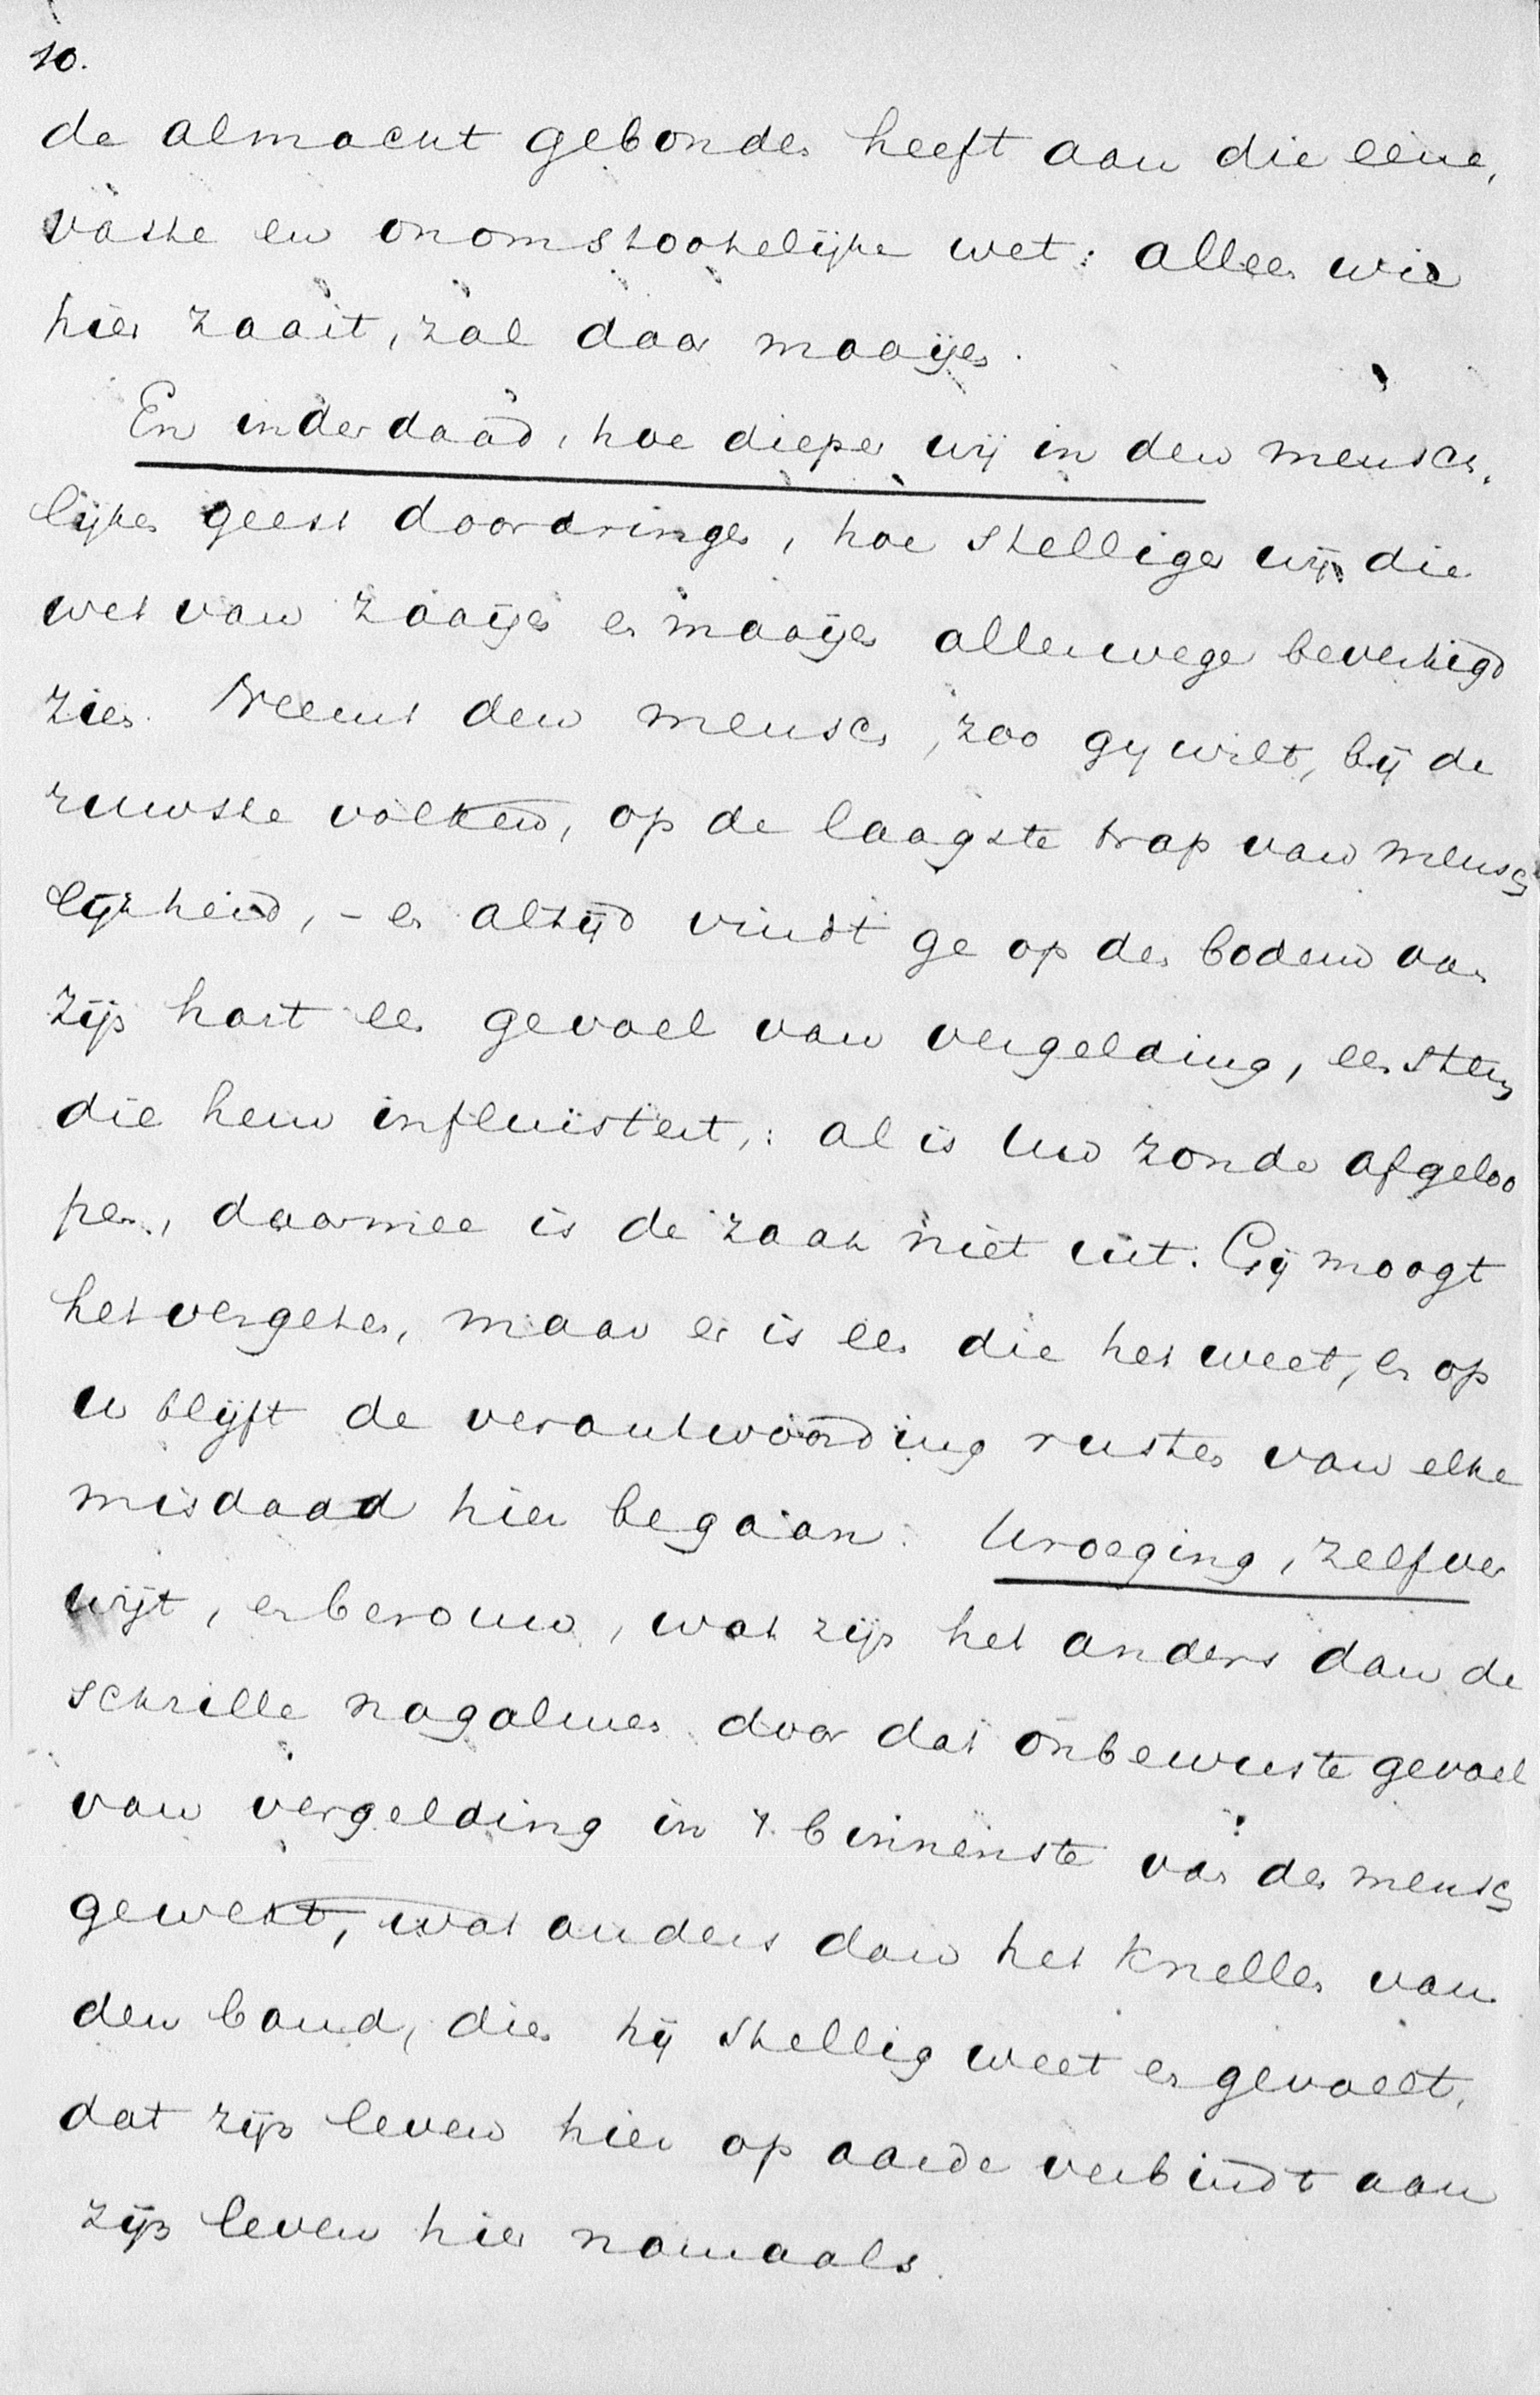 10.
de almacht gebonden heeft aan die eene,
vaste en onomstootelijke wet: alleen wie
hier zaait, zal daar maaijen.
En inderdaad, hoe dieper wij in den mensch-
lijken geest doordringen, hoe stelliger wij die
wet van zaaijen en maaijen allerwege bevestigd
zien. Neemt den mensch, zoo gij wilt, bij de
ruwste volken, op de laagste trap van mensch
lijkheid, - en altijd vindt ge op den bodem van
zijn hart een gevoel van vergelding, een stem
die hem influistert,: al is Uw zonde afgeloo
pen, daarmee is de zaak niet uit. Gij moogt
het vergeten, maar er is een die het weet, en op
U blijft de verantwoording rusten van elke
misdaad hier begaan. Wroeging, zelfver
wijt, en berouw, wat zijn het anders dan de
schrille nagalmen door dat onbewuste gevoel
van vergelding in 't binnenste van den mensch
gewekt, wat anders dan het knellen van
den band, dien hij stellig weet en gevoelt,
dat zijn leven hier op aarde verbindt aan
zijn leven hier namaals.